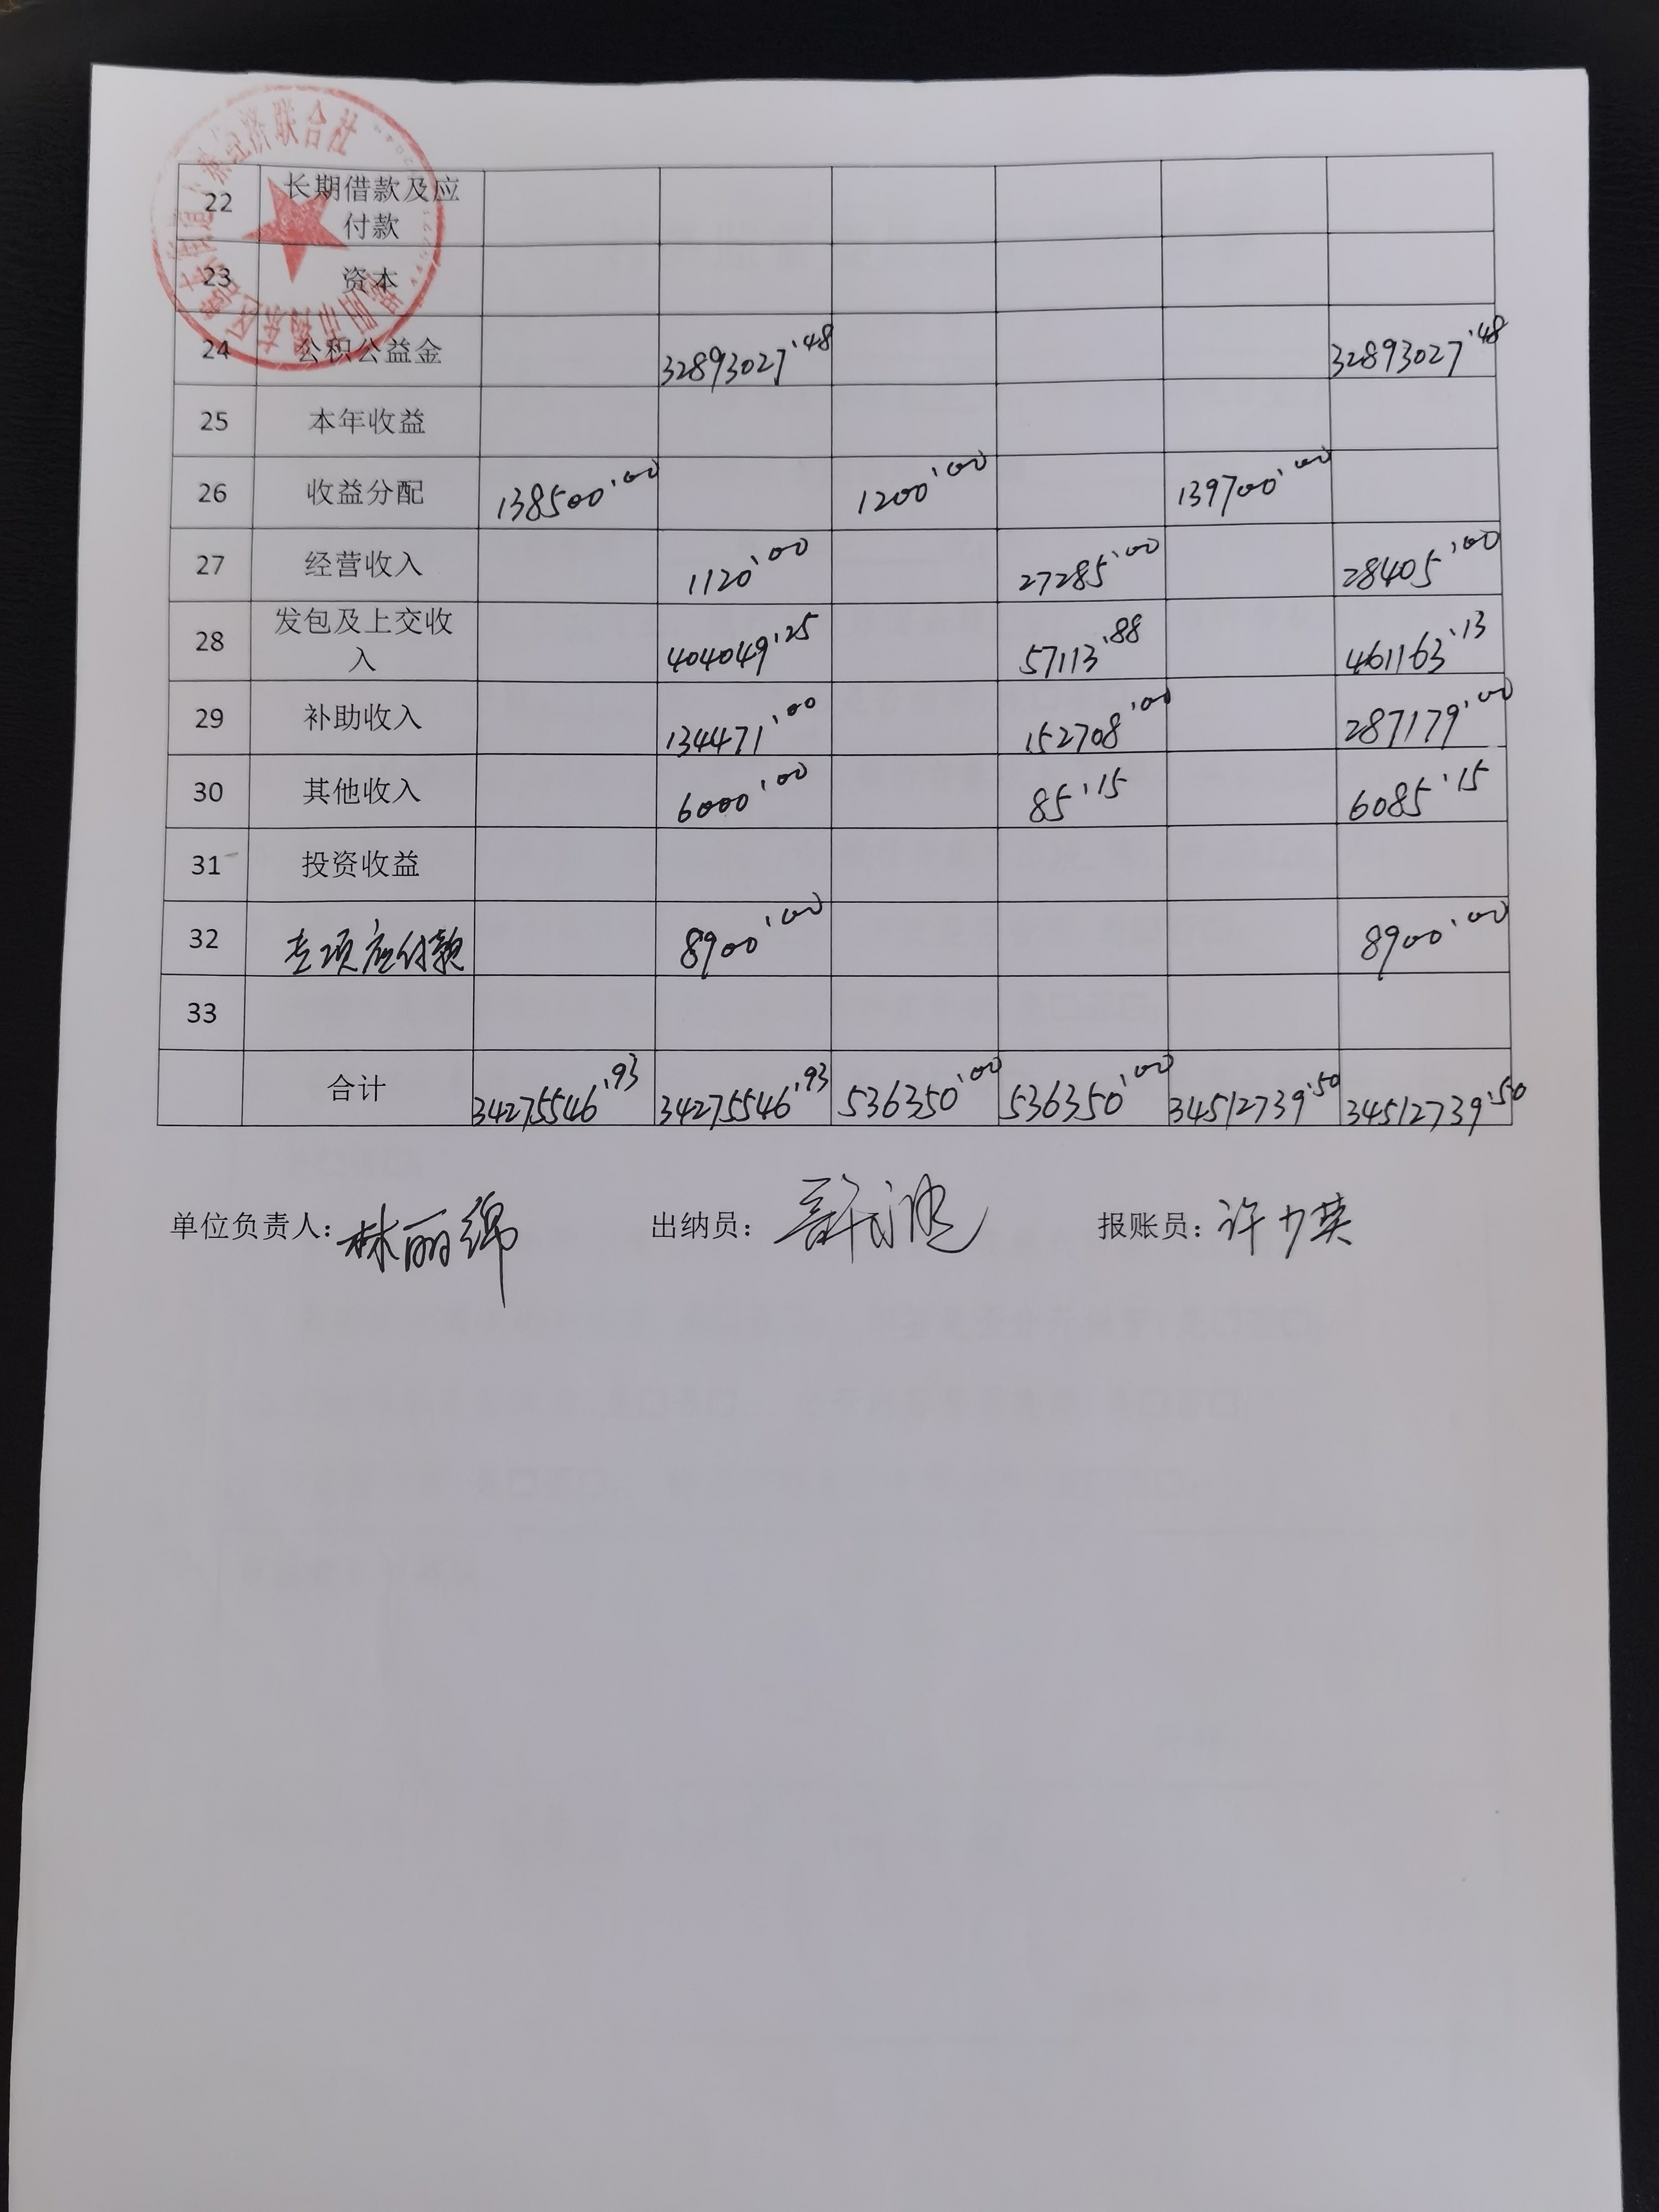 经济联合社
22 长期借款及应
付款
23 资本
24 公积公益金 32893027.48 32893027.48
25 本年收益
26 收益分配 138500.00 1200.00 139700.00
27 经营收入 1120.00 27285.00 28405.00
28 发包及上交收
入 404049.25 57113.88 461163.13
29 补助收入 134471.00 152708.00 287179.00
30 其他收入 6000.00 85.15 6085.15
31 投资收益
32 专项应付款 8900.00 8900.00
33
合计 34275546.93 34275546.93 536350.00 536350.00 34512739.50 34512739.50
单位负责人: 林丽绵 出纳员: 报账员: 许少英